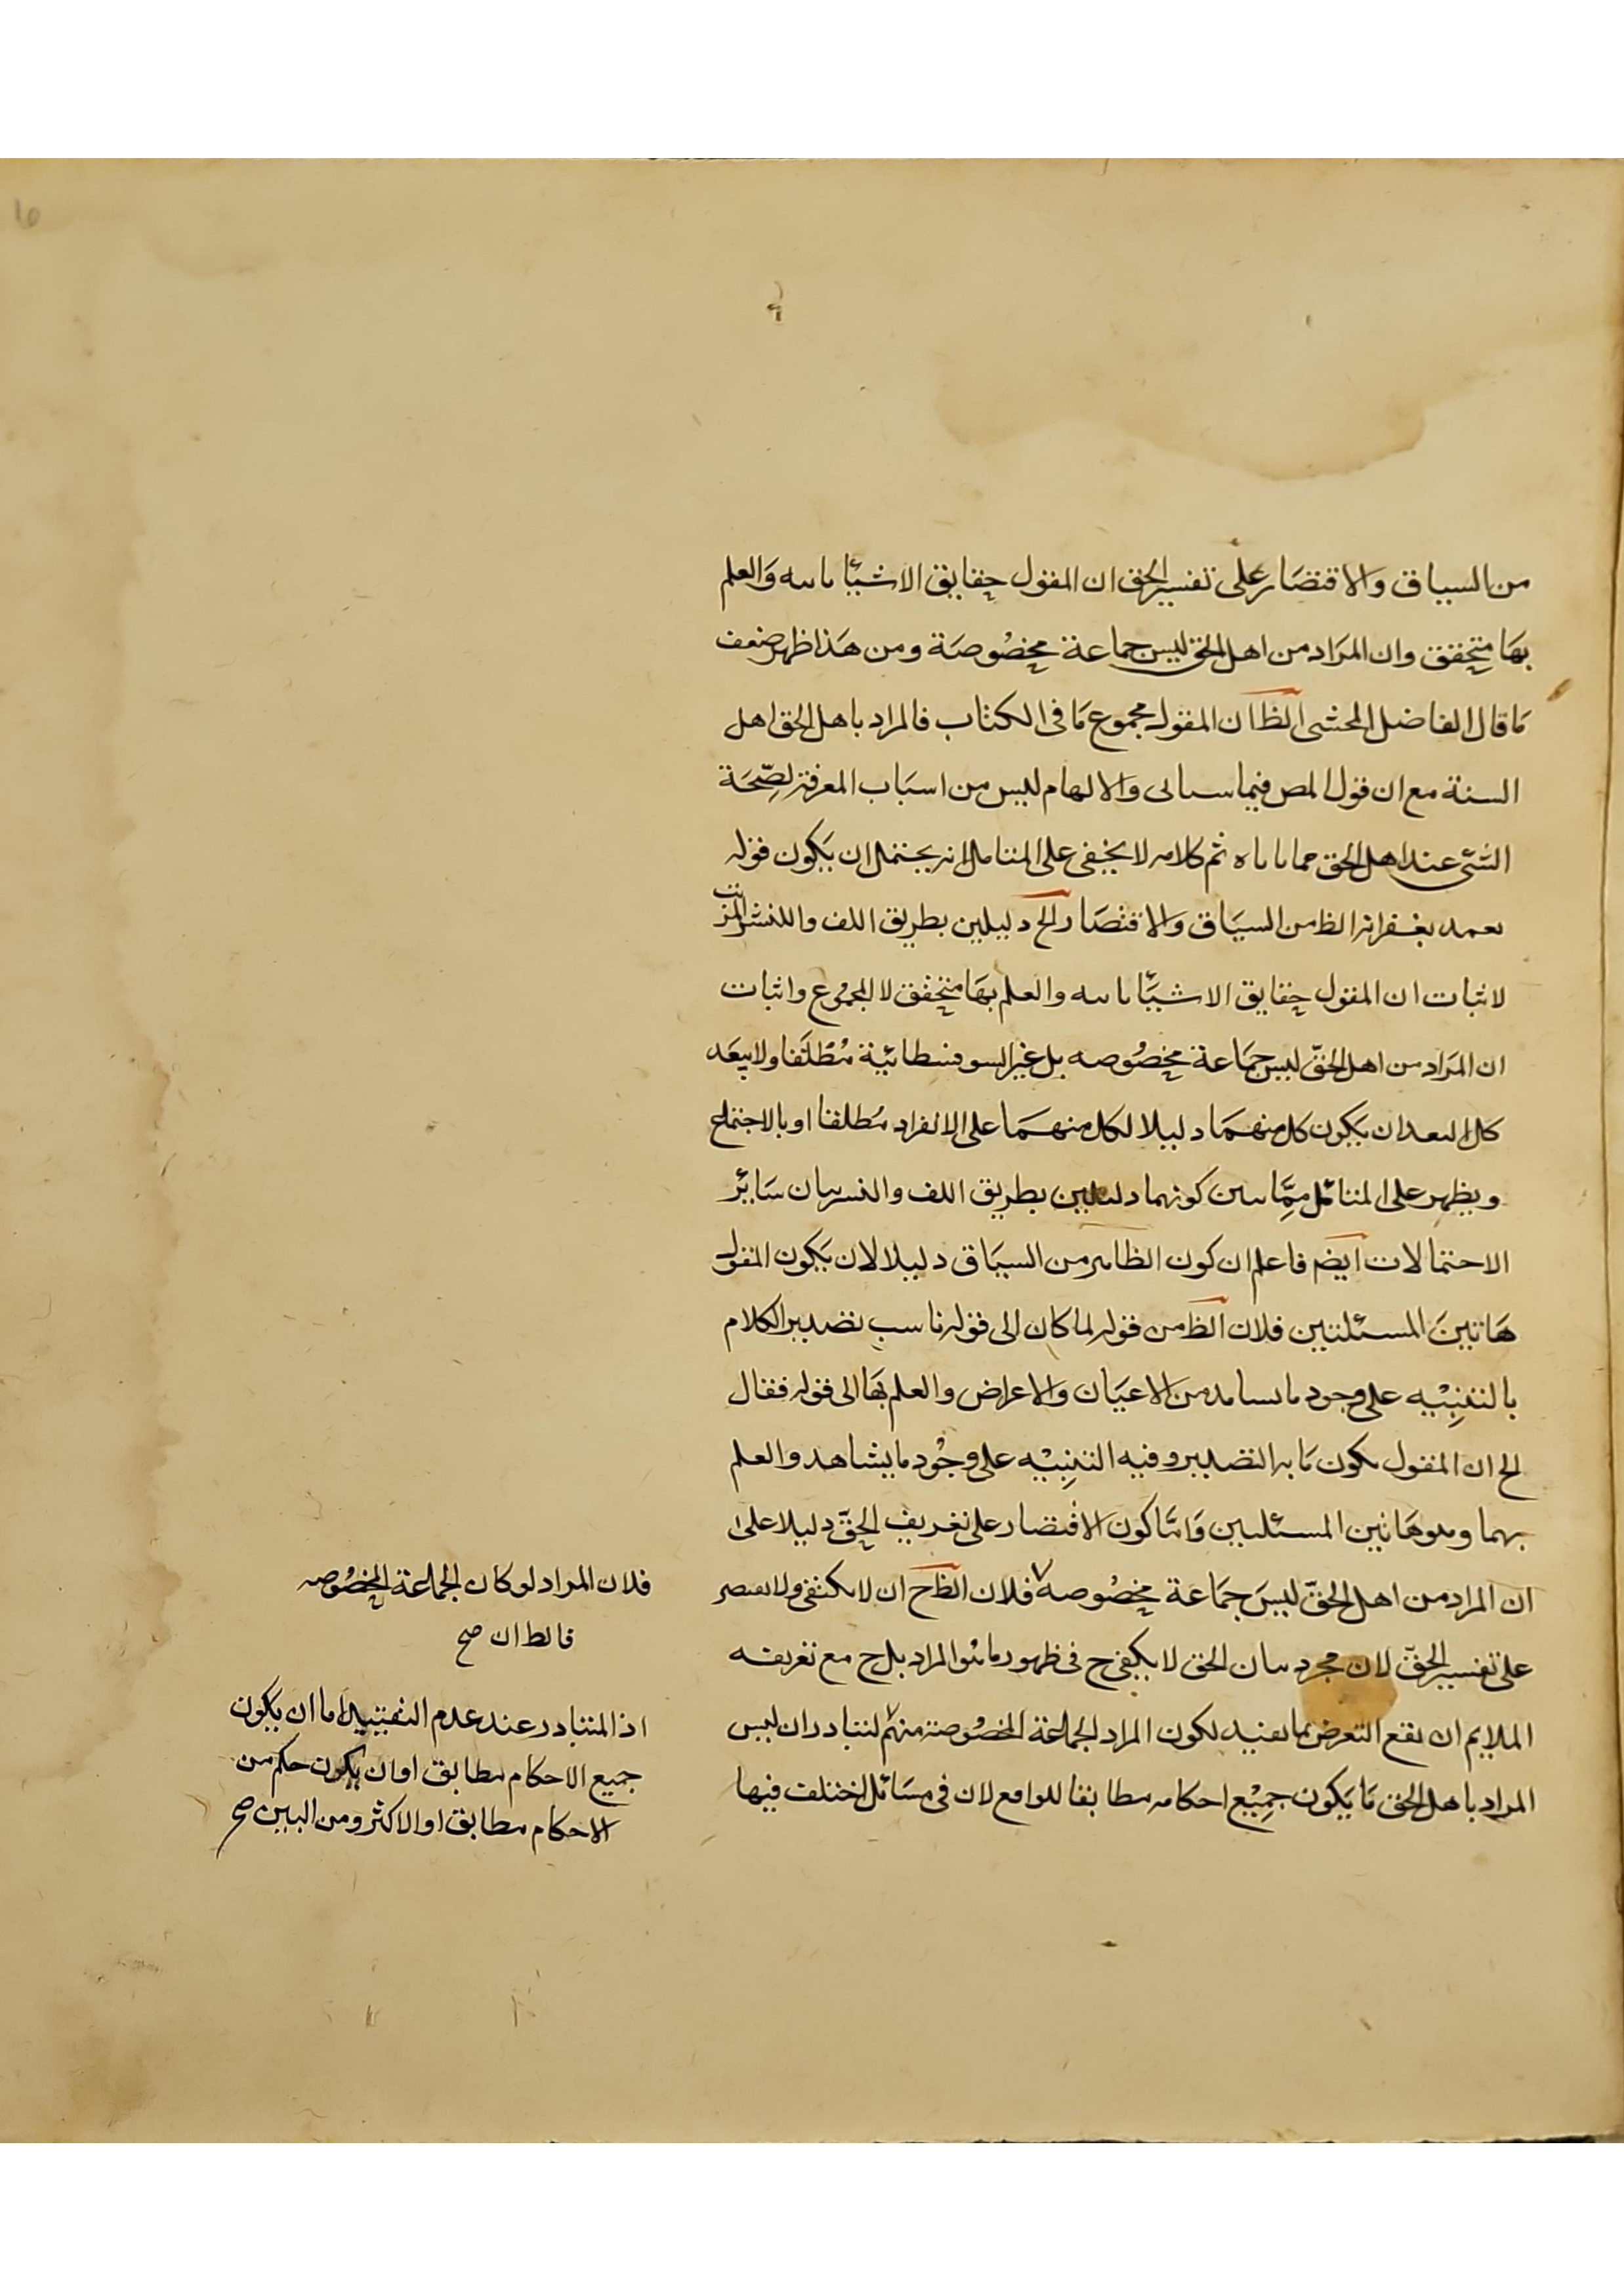 من السياق والاقتصار على تفسير الحق ان المقول حقايق الاشياء ثابتة والعلم
بها متحقق وان المراد من اهل الحق ليس جماعة مخصوصة ومن هذا ظهر ضعف
ما قال الفاضل المحشى الظ ان المقول مجموع ما فى الكتاب فالمراد باهل الحق اهل
السنة مع ان قول المص فيما سياتى والالهام ليس من اسباب المعرفة لصحة
الشئ عند اهل الحق ثم كلامه لا يخفى على المتامل انه يحتمل ان يكون قوله
بغفرانه الظ من السياق والاقتصار الخ دليلين بطريق اللف والنشر المرتب
لاثبات ان المقول حقايق الاشياء ثابتة والعلم بها متحقق لا المجموع واثبات
ان المراد من اهل الحق ليس جماعة مخصوصه بل غير السوفسطائية مطلقا ولا يبعد
كل البعد ان يكون كل منهما دليلا لكل منهما على الانفراد مطلقا او بالاجتماع
ويظهر على المتائمل مما سين كونهما دليلين بطريق اللف والنشر بيان سائر
الاحتمالات ايضا فاعلم ان كون الظاهر من السياق دليلا لان يكون المقول
هاتين المسئلتين فلان الظ من قوله لما كان الى قوله ناسب تصدير الكلام
بالتنبيه على وجود ما يشاهد من الاعيان والاعراض والعلم بها الى قوله فقال
الخ ان المقول يكون ما به التصدير وفيه التنبيه على وجود ما يشاهد والعلم
بهما وهو هاتين المسئلتين واما كون الاقتصار على تعريف الحق دليلا على
ان المراد من اهل الحق ليس جماعة مخصوصه فلان الظ ح ان لا يكتفى ولا يقتصر
على تفسير الحق لان مجرد بيان الحق لا يكفى ح فى ظهور ما هو المراد بل ح مع تعريفه
الملايم ان يقع التعرض بما يفيد لكون المراد الجماعة المخصوصة منهم لتبادر ان ليس
المراد باهل الحق ما يكون جميع احكامه مطابقا للواقع لان فى مسائل اختلف فيها
فلان المراد لو كان الجماعة المخصوصه
فالظ ان صح
اذ المتبادر عند عدم التقييد اما ان يكون
جميع الاحكام مطابق او ان يكون حكم من
الاحكام مطابق او الاكثر ومن البين صح